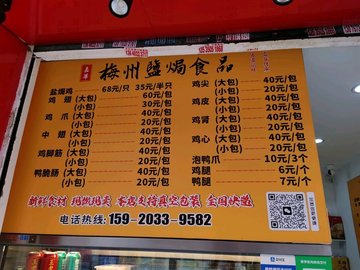 梅州鹽焗食品
盐焗鸡 68元/只 35元/半只
鸡翅(大包) 60元/包
(小包) 30元/包
鸡爪(大包) 40元/包
(小包) 20元/包
中翅(大包) 40元/包
(小包) 20元/包
鸡脚筋(大包) 40元/包
(小包) 20元/包
鸭脆肠(大包) 40元/包
(小包) 20元/包
鸡尖(大包) 40元/包
(小包) 20元/包
鸡皮(大包) 40元/包
(小包) 20元/包
鸡肾(大包) 40元/包
(小包) 20元/包
鸡心(大包) 40元/包
(小包) 20元/包
泡鸭爪 10元/3个
鸡腿 6元/个
鸭腿 7元/个
新鲜食材 现做现卖 本店支持真空包装 全国快递
电话热线:159-2033-9582